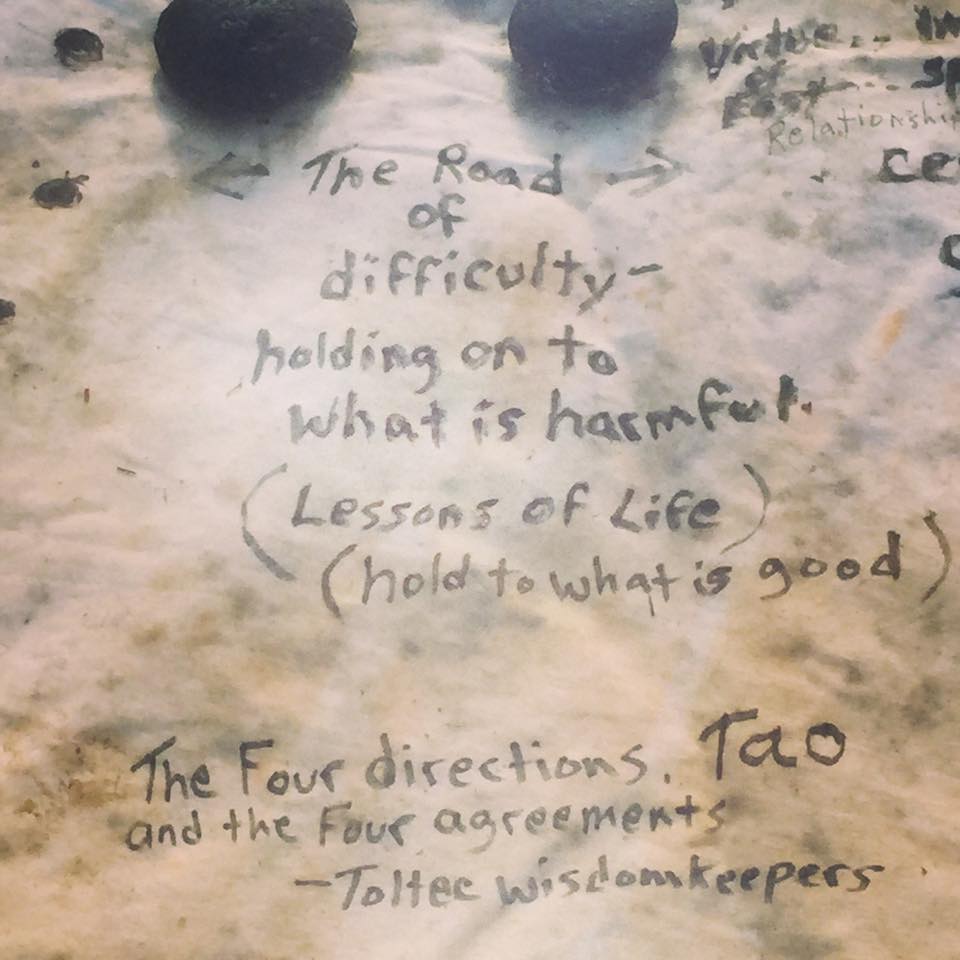 Virtue..
of
East...
Relationship
← The Road →
of
difficulty-
holding on to
what is harmful.
(Lessons of Life)
(hold to what is good)
The Four directions. Tao
and the Four agreements
-Toltec wisdomkeepers